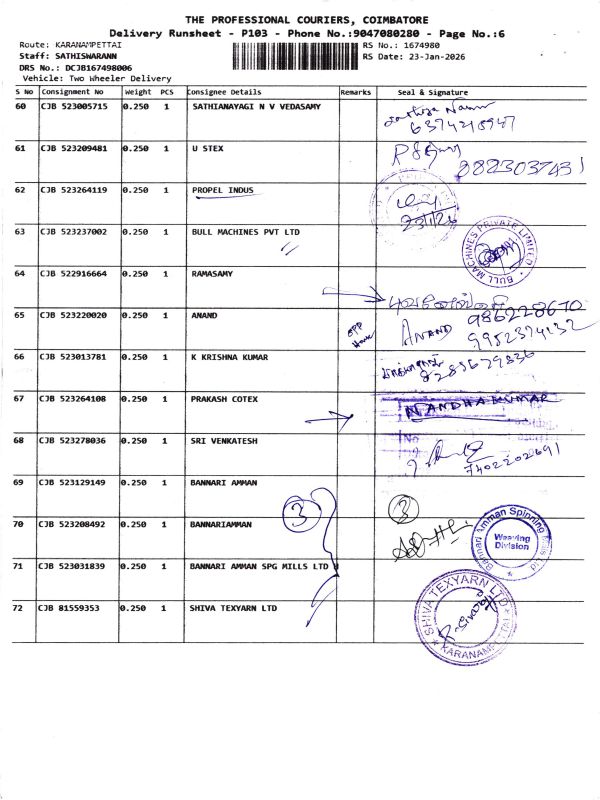 THE PROFESSIONAL COURIERS, COIMBATORE
Delivery Runsheet - P103 - Phone No.:9047080280 - Page No.:6
Route: KARANAMPETTAI
RS No.: 1674980
Staff: SATHISWARANN
RS Date: 23-Jan-2026
DRS No.: DCJB167498006
Vehicle: Two Wheeler Delivery
S No Consignment No Weight PCS Consignee Details Remarks Seal & Signature
60 CJB 523005715 0.250 1 SATHIANAYAGI N V VEDASAMY
6374218947
61 CJB 523209481 0.250 1 U STEX
8823037431
62 CJB 523264119 0.250 1 PROPEL INDUS
23/1/26
63 CJB 523237002 0.250 1 BULL MACHINES PVT LTD
BULL MACHINES PRIVATE LIMITED
64 CJB 522916664 0.250 1 RAMASAMY
புவனேஸ்வரி
986228670
65 CJB 523220020 0.250 1 ANAND
OPP House
ANAND 9952374132
66 CJB 523013781 0.250 1 K KRISHNA KUMAR
8285679836
67 CJB 523264108 0.250 1 PRAKASH COTEX
NANDHAKUMAR
68 CJB 523278036 0.250 1 SRI VENKATESH
No
7402202691
69 CJB 523129149 0.250 1 BANNARI AMMAN
3 3
70 CJB 523208492 0.250 1 BANNARIAMMAN
Bannari Amman Spinning Mills Ltd
Weaving Division
71 CJB 523031839 0.250 1 BANNARI AMMAN SPG MILLS LTD
72 CJB 81559353 0.250 1 SHIVA TEXYARN LTD
SHIVA TEXYARN LTD
KARANAMPETTAI